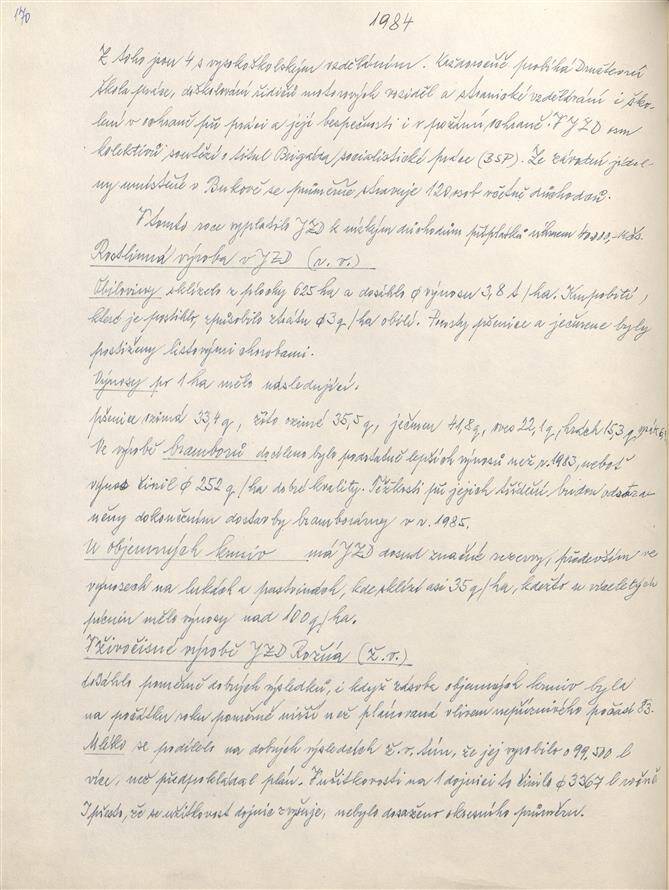 170
1984
Z toho jsou 4 s vysokoškolským vzděláním. Každoročně probíhá Družstevní
škola práce, doškolování řidičů motorových vozidel a stranické vzdělávání i ško-
lení v ochraně při práci a její bezpečnosti i v požární ochraně. V JZD osm
kolektivů soutěží o titul Brigáda socialistické práce (BSP). Ze závodní jídel-
ny umístěné v Bukově se průměrně stravuje 120 osob včetně důchodců.
V tomto roce vyplatilo JZD k nízkým důchodům příplatků úhrnem 40 000,- Kčs.
Rostlinná výroba v JZD (r. v.)
Obiloviny sklízelo z plochy 625 ha a docíklo ϕ výnosu 3,8 t/ha. Krupobití,
které je postihlo, způsobilo ztrátu ϕ 3 q/ha obilí. Porosty pšenice a ječmene byly
postiženy listovými chorobami.
Výnosy po 1 ha mělo následující.
pšenice ozimá 33,4 q, žito ozimé 35,5 q, ječmen 41,8 q, oves 22,1 q, hrách 15,3 q,
Ve výrobě bramborů docíleno bylo podstatně lepších výnosů než r. 1983, neboť
výnos činil ϕ 252 q/ha dobré kvality. Těžkosti při jejich třídění budou odstra-
něny dokončením dostavby bramborárny v r. 1985.
U objemných krmiv má JZD dosud značné rezervy, především ve
výnosech na lukách a pastvinách, kde sklízí asi 35 q/ha, kdežto u víceletých
pícnin mělo výnosy nad 100 q/ha.
V živočišné výrobě JZD Rožná (ž. v.)
dosáhlo poměrně dobrých výsledků, i když zásoba objemných krmiv byla
na počátku roku poměrně nižší než plánovaná vlivem nepříznivého počasí 83.
Mléko se podílelo na dobrých výsledcích ž. v. tím, že jej vyrobilo o 99.500 l
více, než předpokládal plán. V užitkovosti na 1 dojnici to činilo ϕ 3367 l ročně
I přesto, že se užitkovost dojnic zvyšuje, nebylo dosaženo okresního průměru.